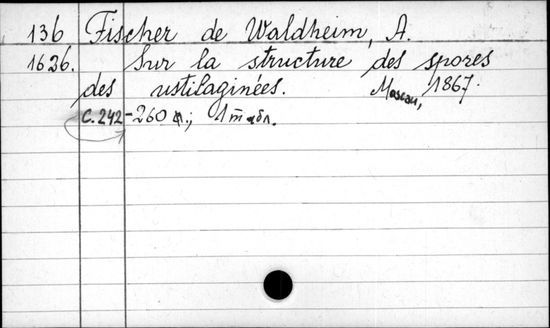 136 Fischer de Waldheim, A.
1626. Sur la structure des spores
des ustilaginées. Moscau, 1867.
С. 242-260 ; 1 табл.